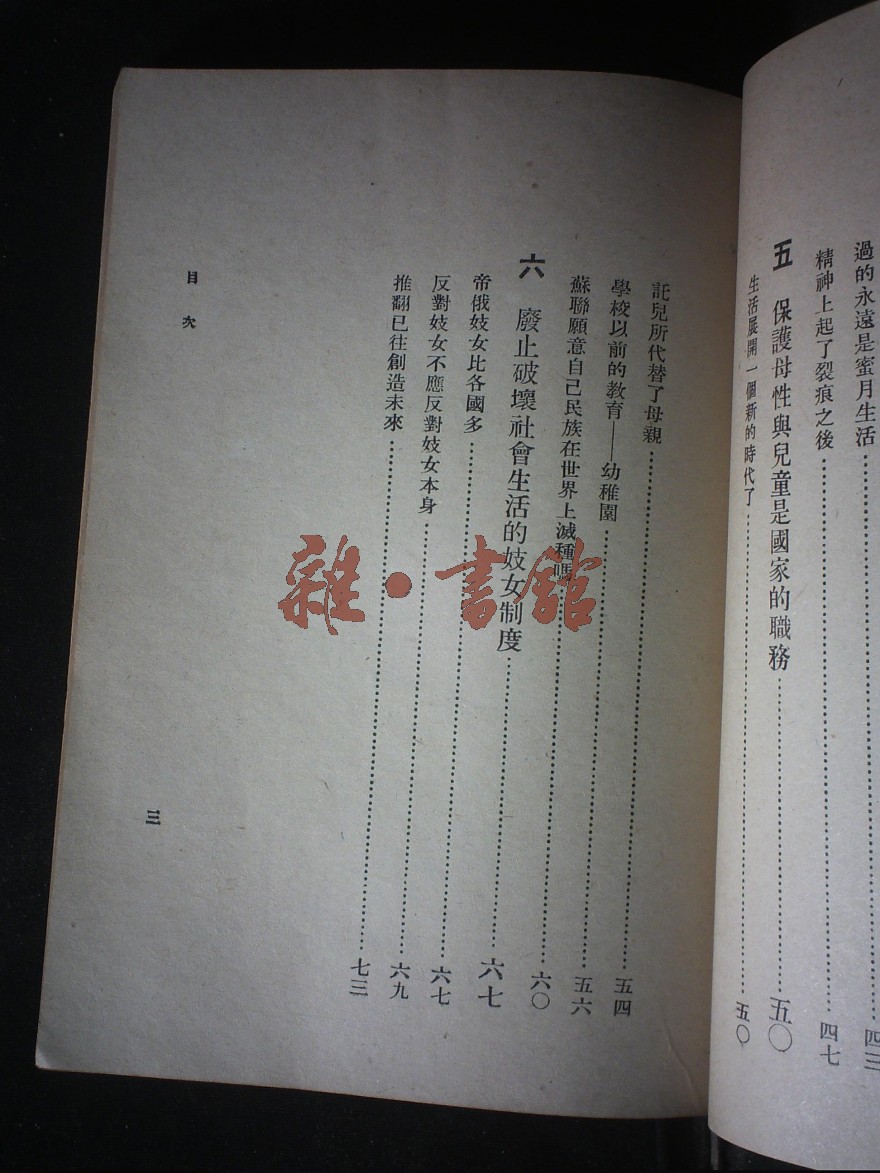 過的永遠是蜜月生活…………四三
精神上起了裂痕之後…………四七
五 保護母性與兒童是國家的職務…………五〇
生活展開一個新的時代了…………五〇
託兒所代替了母親…………五四
學校以前的教育——幼稚園…………五六
蘇聯願意自己民族在世界上滅種嗎…………六〇
六 廢止破壞社會生活的妓女制度…………六七
帝俄妓女比各國多…………六七
反對妓女不應反對妓女本身…………六九
推翻已往創造未來…………七三
目次
三
雜·書館